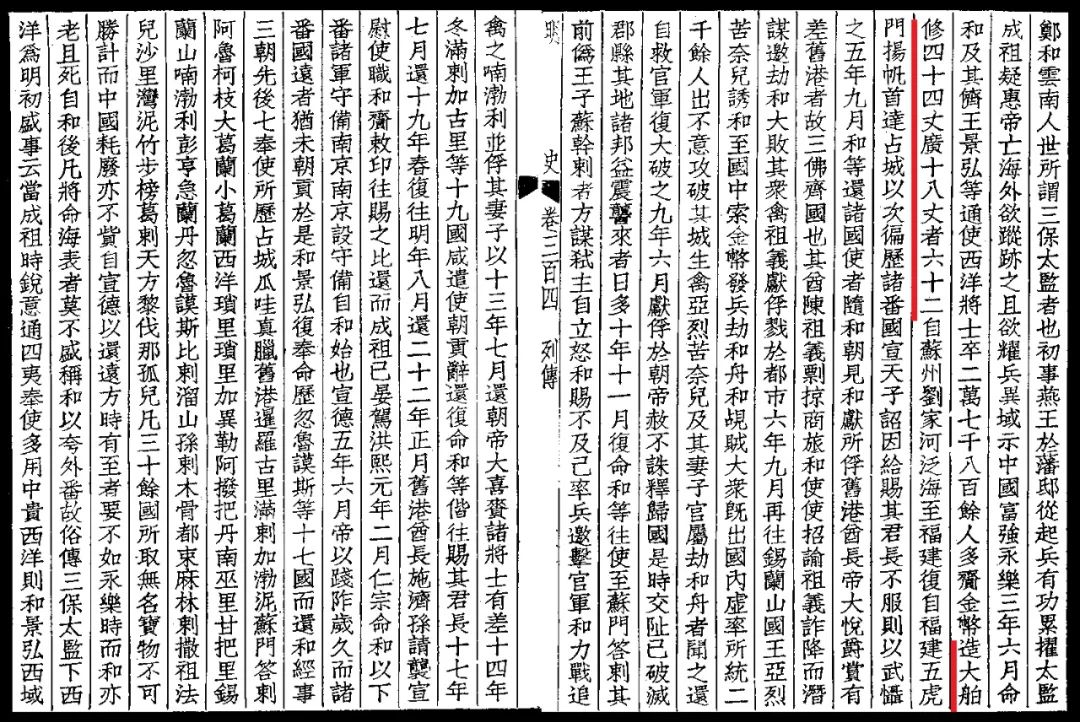 鄭和雲南人世所謂三保太監者也初事燕王於藩邸從起兵有功累擢太監
成祖疑惠帝亡海外欲蹤跡之且欲耀兵異域示中國富強永樂三年六月命
和及其儕王景弘等通使西洋將士卒二萬七千八百餘人多齎金幣造大舶
修四十四丈廣十八丈者六十二自蘇州劉家河泛海至福建復自福建五虎
門揚帆首達占城以次徧歷諸番國宣天子詔因給賜其君長不服則以武懾
之五年九月和等還諸國使者隨和朝見和獻所俘舊港酋長帝大悅爵賞有
差舊港者故三佛齊國也其酋陳祖義剽掠商旅和使使招諭祖義詐降而潛
謀邀劫和大敗其眾禽祖義獻俘戮於都市六年九月再往錫蘭山國王亞烈
苦奈兒誘和至國中索金幣發兵劫和舟和覘賊大眾既出國內虛率所統二
千餘人出不意攻破其城生禽亞烈苦奈兒及其妻子官屬劫和舟者聞之還
自救官軍復大破之九年六月獻俘於朝帝赦不誅釋歸國是時交阯已破滅
郡縣其地諸邦益震讋來者日多十年十一月復命和等往使至蘇門答剌其
前偽王子蘇幹剌者方謀弒主自立怒和賜不及己率兵邀擊官軍和力戰追
史 卷三百四 列傳
禽之喃渤利並俘其妻子以十三年七月還朝帝大喜賚諸將士有差十四年
冬滿剌加古里等十九國咸遣使朝貢辭還復命和等偕往賜其君長十七年
七月還十九年春復往明年八月還二十二年正月舊港酋長施濟孫請襲宣
慰使職和齎敕印往賜之比還而成祖已晏駕洪熙元年二月仁宗命和以下
番諸軍守備南京南京設守備自和始也宣德五年六月帝以踐阼歲久而諸
番國遠者猶未朝貢於是和景弘復奉命歷忽魯謨斯等十七國而還和經事
三朝先後七奉使所歷占城瓜哇真臘舊港暹羅古里滿剌加渤泥蘇門答剌
阿魯柯枝大葛蘭小葛蘭西洋瑣里瑣里加異勒阿撥把丹南巫里甘把里錫
蘭山喃渤利彭亨急蘭丹忽魯謨斯比剌溜山孫剌木骨都束麻林剌撒祖法
兒沙里灣泥竹步榜葛剌天方黎伐那孤兒凡三十餘國所取無名寶物不可
勝計而中國耗廢亦不貲自宣德以還遠方時有至者要不如永樂時而和亦
老且死自和後凡將命海表者莫不盛稱和以夸外番故俗傳三保太監下西
洋為明初盛事云當成祖時銳意通四夷奉使多用中貴西洋則和景弘西域